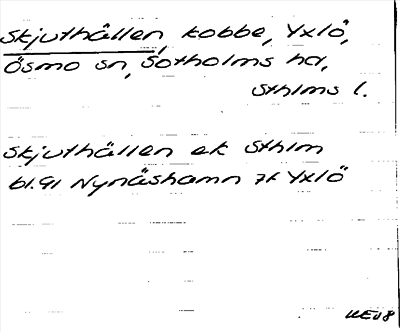 Skjuthällen, kobbe, Yxlö,
Ösmo sn, Sotholms hd,
Sthlms l.
Skjuthällen ek Sthlm
bl.91 Nynäshamn 7f Yxlö